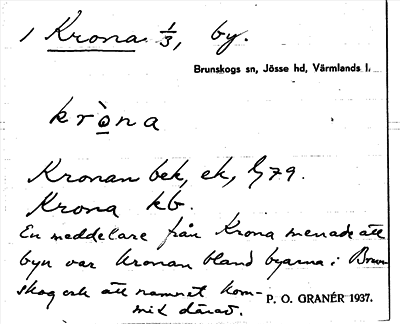 1 Krona 1/3, by.
Brunskogs sn, Jösse hd, Värmlands l.
kròna
Kronan bek, ek, G79.
Krona kb.
En meddelare från Krona menade att
byn var kronan bland byarna i Brun
skog och att namnet kom-
mit därav.
P. O. GRANÉR 1937.